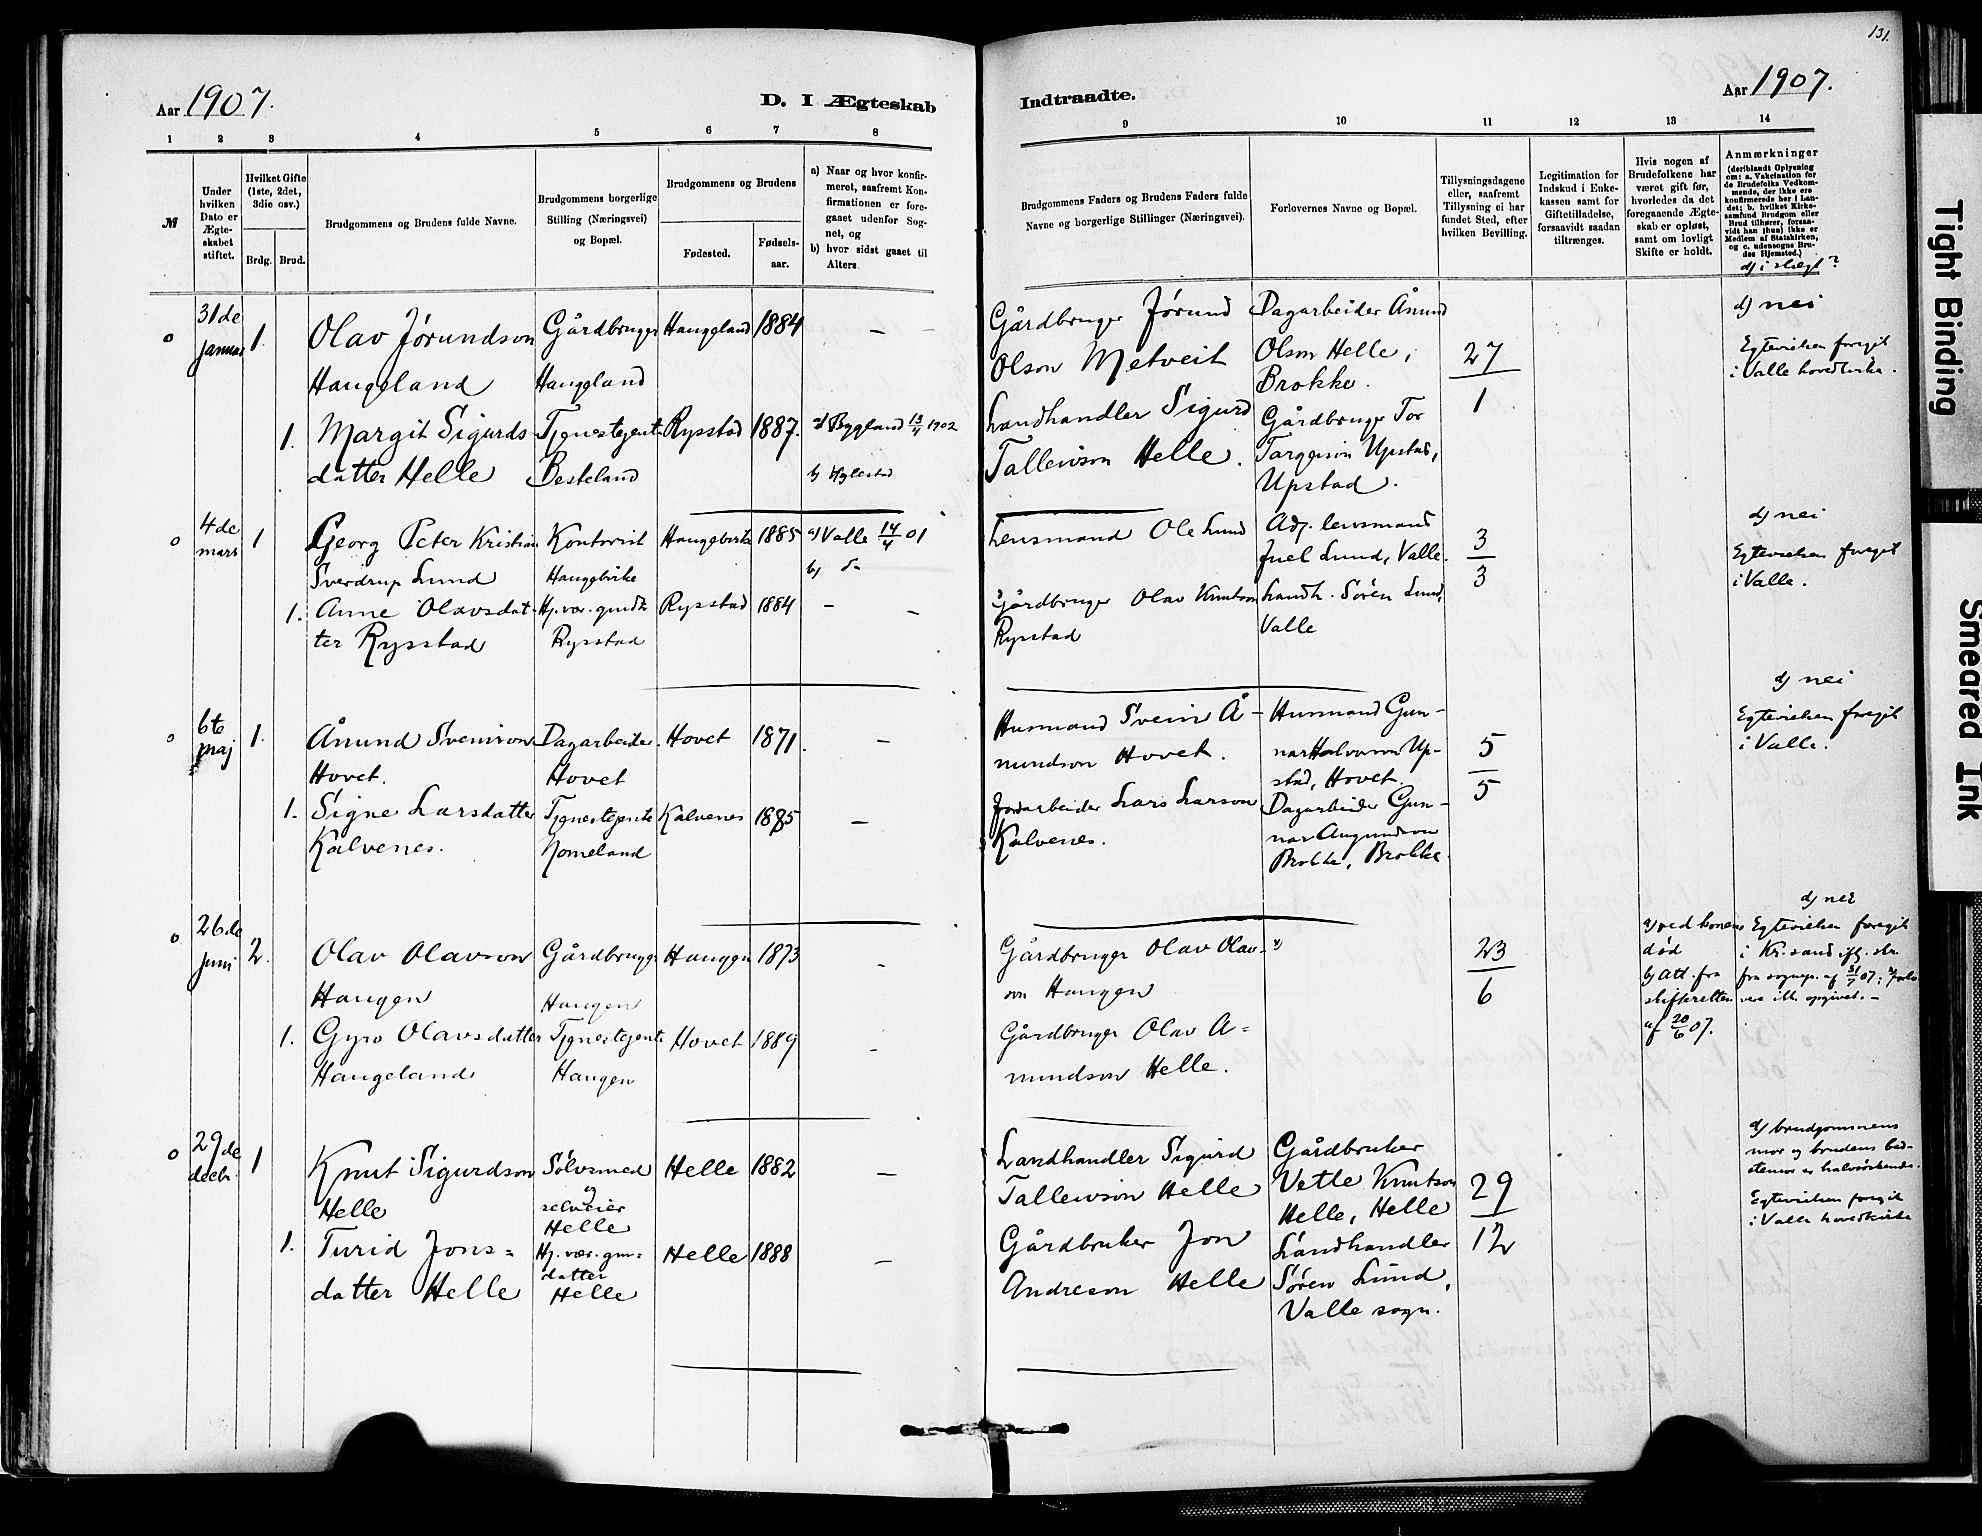 131.
Aar 1907.
D. I Ægteskab
Indtraadte.
Aar 1907.
1 2 3 4 5 6 7 8
9 10 11 12 13 14
№
Under hvilken Dato er Ægteskabet stiftet.
Hvilket Gifte (1ste, 2det, 3die osv.)
Brdg. Brud.
Brudgommens og Brudens fulde Navne.
Brudgommens borgerlige Stilling (Næringsvei) og Bopæl.
Brudgommens og Brudens
Fødested. Fødselsaar.
a) Naar og hvor konfirmeret, saafremt Konfirmationen er foregaaet udenfor Sognet, og
b) hvor sidst gaaet til Alters.
Brudgommens Faders og Brudens Faders fulde Navne og borgerlige Stillinger (Næringsvei).
Forlovernes Navne og Bopæl.
Tillysningsdagene eller, saafremt Tillysning ei har fundet Sted, efter hvilken Bevilling.
Legitimation for Indskud i Enkekassen samt for Giftetilladelse, forsaavidt saadan tiltrænges.
Hvis nogen af Brudefolkene har været gift før, hvorledes da det foregaaende Ægteskab er opløst, samt om lovligt Skifte er holdt.
Anmærkninger (deriblandt Oplysning om: a. Vakcination for de Brudefolks Vedkommende, der ikke ere konfirmerede her i Landet; b. hvilket Kirkesamfund Brudgom eller Brud tilhører, forsaavidt han (hun) ikke er Medlem af Statskirken, og c. udensogns Brudes Hjemsted.)
d) i slægt?
31de januar
1.
Olav Jørundson
Haugeland
Gårdbruger
Haugland
Haugland
1884
—
Gårdbruger Jørund
Olson Metveit
Dagarbeider Ånund
Olson Helle,
Brokke.
27
1
d) nei
Egtevielsen foregik
i Valle hovedkirke.
1.
Margit Sigurds-
datter Helle
Tjenestejente
Besteland
Rysstad
1887.
a) Bygland 13/4 1902
b) Hylestad
Landhandler Sigurd
Tallewson Helle.
Gårdbruger Tor
Targeison Upstad,
Upstad.
4de mars
1
Georg Peter Kristian
Sverdrup Lund
Kontorist
Haugebirke
Haugebirke
1885
a) Valle 14/4 01
b) do
Lensmand Ole Lund
Adj. lensmand
Juel Lund, Valle.
3
3
d) nei
Egtevielsen foregik
i Valle.
1.
Anne Olavsdat-
ter Rysstad
Hj.vær. gmdt
Rysstad
Rysstad
1884
—
Gårdbruger Olav Knutson
Rysstad
Landh. Søren Lund,
Valle
6te maj
1.
Ånund Sveinson
Hovet.
Dagarbeider
Hovet
Hovet
1871.
—
Husmand Svein Å-
nundson Hovet.
Husmand Gun-
nar Halvorson Up-
stad, Hovet.
5
5
d) nei
Egtevielsen foregik
i Valle.
1.
Signe Larsdatter
Kalvenes.
Tjenestejente
Nomeland
Kalvenes
1885
—
Jordarbeider Lars Larson
Kalvenes.
Dagarbeider Gun-
nar Augundson
Brokke, Brokke.
26de juni
2.
Olav Olavson
Haugen
Gårdbruger
Haugen
Haugen
1873
-
Gårdbruger Olav Olav-
son Haugen
23
6
a) ved konens
død
b) Att. fra
skifteretten
af 20/6 07.
d) nei
Egtevielsen foregik
i Kr.sand ifl. skr.
fra sognepr. af 31/7 07;
1.
Gyro Olavsdatter
Haugeland
Tjenestejente
Haugen
Hovet
1889
-
Gårdbruger Olav A=
nundson Helle.
29de decbr.
1
Knut Sigurdson
Helle
Sølvsmed
og
selveier
Helle
Helle
1882
—
Landhandler Sigurd
Tallewson Helle
Gårdbruker
Vetle Knutson
Helle, Helle
29
12
d) brudgommens
mor og brudens bed-
stemor er halvsøskende.
Egtevielsen foregik
i Valle hovedkirke
1.
Turid Jons=
datter Helle
Hj.vær. gm=
datter
Helle
Helle
1888
—
Gårdbruker Jon
Andreson Helle
Landhandler
Søren Lund,
Valle sogn.
Tight Binding
Smeared Ink